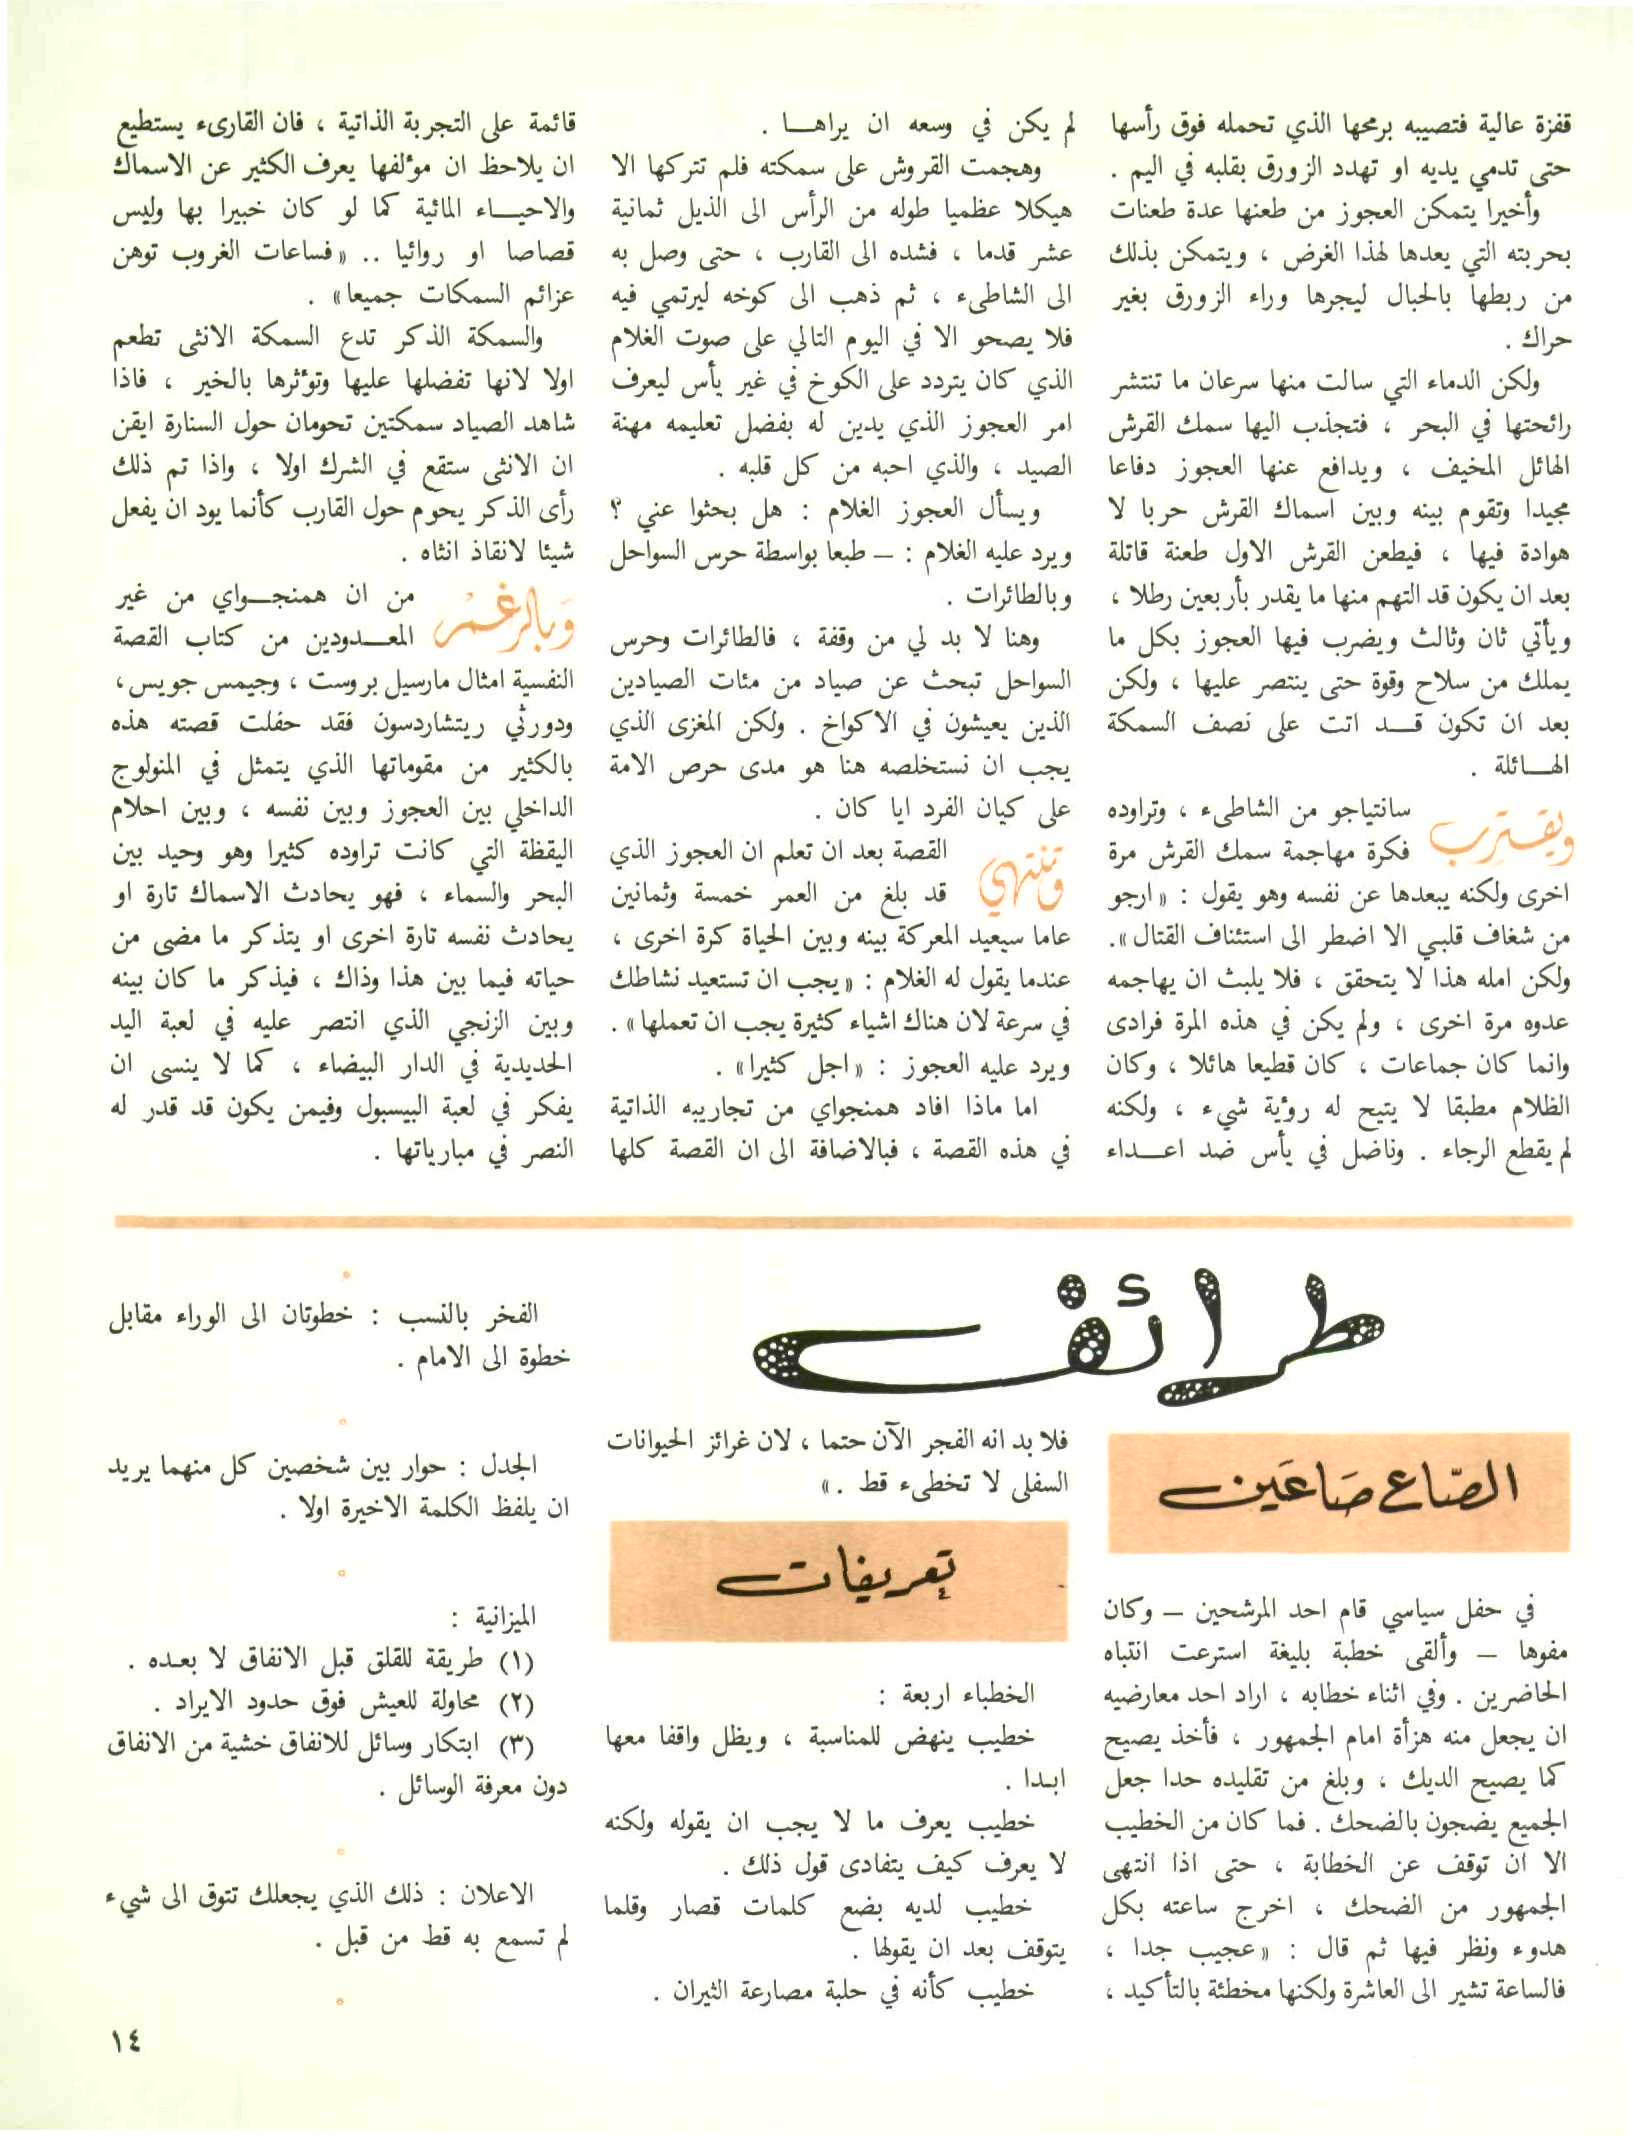 قفزة عالية فتصيبه برمحها الذي تحمله فوق رأسها
حتى تدمي يديه او تهدد الزورق بقلبه في اليم .
وأخيرا يتمكن العجوز من طعنها عدة طعنات
بحربته التي يعدها لهذا الغرض ، ويتمكن بذلك
من ربطها بالحبال ليجرها وراء الزورق بغير
حراك .
ولكن الدماء التي سالت منها سرعان ما تنتشر
رائحتها في البحر ، فتجذب اليها سمك القرش
الهائل المخيف ، ويدافع عنها العجوز دفاعا
مجيدا وتقوم بينه وبين اسماك القرش حربا لا
هوادة فيها ، فيطعن القرش الاول طعنة قاتلة
بعد ان يكون قد التهم منها ما يقدر بأربعين رطلا ،
ويأتي ثان وثالث ويضرب فيها العجوز بكل ما
يملك من سلاح وقوة حتى ينتصر عليها ، ولكن
بعد ان تكون قـــد اتت على نصف السمكة
الهـــائلة .
ويقترب سانتياجو من الشاطىء ، وتراوده
فكرة مهاجمة سمك القرش مرة
اخرى ولكنه يبعدها عن نفسه وهو يقول : «ارجو
من شغاف قلبي الا اضطر الى استئناف القتال».
ولكن امله هذا لا يتحقق ، فلا يلبث ان يهاجمه
عدوه مرة اخرى ، ولم يكن في هذه المرة فرادى
وانما كان جماعات ، كان قطيعا هائلا ، وكان
الظلام مطبقا لا يتيح له رؤية شيء ، ولكنه
لم يقطع الرجاء . وناضل في يأس ضد اعـــداء
لم يكن في وسعه ان يراهـــا .
وهجمت القروش على سمكته فلم تتركها الا
هيكلا عظميا طوله من الرأس الى الذيل ثمانية
عشر قدما ، فشده الى القارب ، حتى وصل به
الى الشاطىء ، ثم ذهب الى كوخه ليرتمي فيه
فلا يصحو الا في اليوم التالي على صوت الغلام
الذي كان يتردد على الكوخ في غير يأس ليعرف
امر العجوز الذي يدين له بفضل تعليمه مهنة
الصيد ، والذي احبه من كل قلبه .
ويسأل العجوز الغلام : هل بحثوا عني ؟
ويرد عليه الغلام : – طبعا بواسطة حرس السواحل
وبالطائرات .
وهنا لا بد لي من وقفة ، فالطائرات وحرس
السواحل تبحث عن صياد من مئات الصيادين
الذين يعيشون في الاكواخ . ولكن المغزى الذي
يجب ان نستخلصه هنا هو مدى حرص الامة
على كيان الفرد ايا كان .
وتنتهي القصة بعد ان تعلم ان العجوز الذي
قد بلغ من العمر خمسة وثمانين
عاما سيعيد المعركة بينه وبين الحياة كرة اخرى ،
عندما يقول له الغلام : «يجب ان تستعيد نشاطك
في سرعة لان هناك اشياء كثيرة يجب ان تعملها» .
ويرد عليه العجوز : «اجل كثيرا» .
اما ماذا افاد همنجواي من تجاربيه الذاتية
في هذه القصة ، فبالاضافة الى ان القصة كلها
قائمة على التجربة الذاتية ، فان القارىء يستطيع
ان يلاحظ ان مؤلفها يعرف الكثير عن الاسماك
والاحيـــاء المائية كما لو كان خبيرا بها وليس
قصاصا او روائيا .. «فساعات الغروب توهن
عزائم السمكات جميعا» .
والسمكة الذكر تدع السمكة الانثى تطعم
اولا لانها تفضلها عليها وتؤثرها بالخير ، فاذا
شاهد الصياد سمكتين تحومان حول السنارة ايقن
ان الانثى ستقع في الشرك اولا ، واذا تم ذلك
رأى الذكر يحوم حول القارب كأنما يود ان يفعل
شيئا لانقاذ انثاه .
وَبالرغمْ من ان همنجـــواي من غير
المعـــدودين من كتاب القصة
النفسية امثال مارسيل بروست ، وجيمس جويس،
ودورثي ريتشاردسون فقد حفلت قصته هذه
بالكثير من مقوماتها الذي يتمثل في المنولوج
الداخلي بين العجوز وبين نفسه ، وبين احلام
اليقظة التي كانت تراوده كثيرا وهو وحيد بين
البحر والسماء ، فهو يحادث الاسماك تارة او
يحادث نفسه تارة اخرى او يتذكر ما مضى من
حياته فيما بين هذا وذاك ، فيذكر ما كان بينه
وبين الزنجي الذي انتصر عليه في لعبة اليد
الحديدية في الدار البيضاء ، كما لا ينسى ان
يفكر في لعبة البيسبول وفيمن يكون قد قدر له
النصر في مبارياتها .
طرائف
الصّاع صَاعَين
في حفل سياسي قام احد المرشحين – وكان
مفوها – وألقى خطبة بليغة استرعت انتباه
الحاضرين . وفي اثناء خطابه ، اراد احد معارضيه
ان يجعل منه هزأة امام الجمهور ، فأخذ يصيح
كما يصيح الديك ، وبلغ من تقليده حدا جعل
الجميع يضجون بالضحك . فما كان من الخطيب
الا ان توقف عن الخطابة ، حتى اذا انتهى
الجمهور من الضحك ، اخرج ساعته بكل
هدوء ونظر فيها ثم قال : «عجيب جدا ،
فالساعة تشير الى العاشرة ولكنها مخطئة بالتأكيد ،
فلا بد انه الفجر الآن حتما ، لان غرائز الحيوانات
السفلى لا تخطىء قط .»
تعريفات
الخطباء اربعة :
خطيب ينهض للمناسبة ، ويظل واقفا معها
ابـدا .
خطيب يعرف ما لا يجب ان يقوله ولكنه
لا يعرف كيف يتفادى قول ذلك .
خطيب لديه بضع كلمات قصار وقلما
يتوقف بعد ان يقولها .
خطيب كأنه في حلبة مصارعة الثيران .
الفخر بالنسب : خطوتان الى الوراء مقابل
خطوة الى الامام .
الجدل : حوار بين شخصين كل منهما يريد
ان يلفظ الكلمة الاخيرة اولا .
الميزانية :
(١) طريقة للقلق قبل الانفاق لا بعـده .
(٢) محاولة للعيش فوق حدود الايراد .
(٣) ابتكار وسائل للانفاق خشية من الانفاق
دون معرفة الوسائل .
الاعلان : ذلك الذي يجعلك تتوق الى شيء
لم تسمع به قط من قبل .
١٤